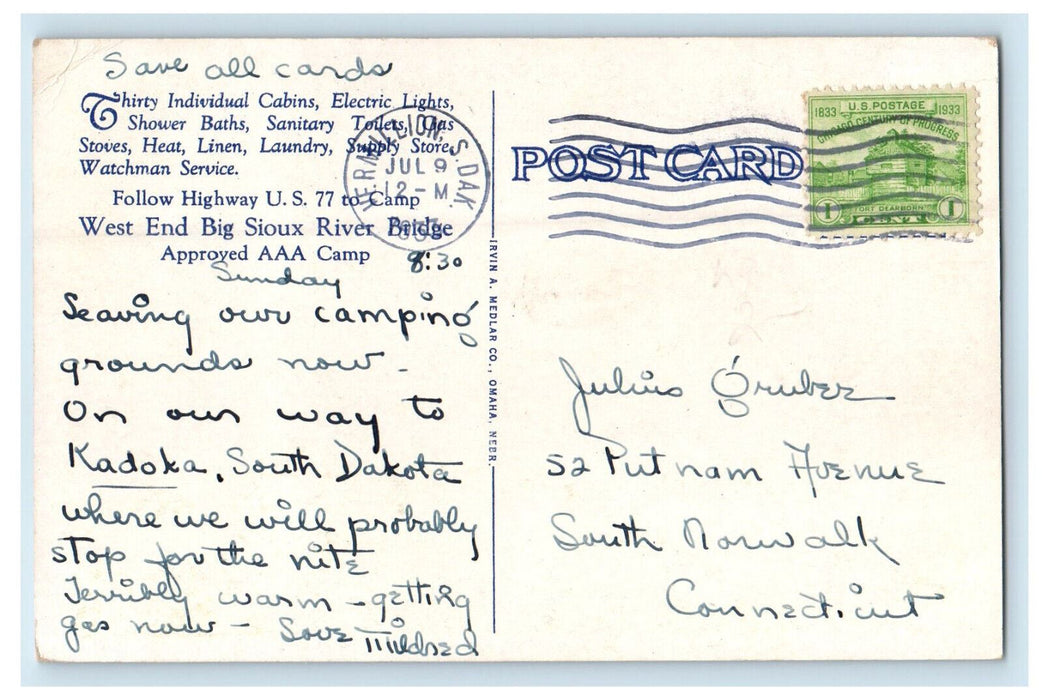 Save all cards
Thirty Individual Cabins, Electric Lights,
Shower Baths, Sanitary Toilets, Gas
Stoves, Heat, Linen, Laundry, Supply Store,
Watchman Service.
Follow Highway U. S. 77 to Camp
West End Big Sioux River Bridge
Approved AAA Camp
8:30
Sunday
Leaving our camping
grounds now -
On our way to
Kadoka, South Dakota
where we will probably
stop for the nite
Terribly warm - getting
gas now - Love Mildred
IRVIN A. MEDLAR CO., OMAHA, NEBR.
VERMILLION, S. DAK.
JUL 9
12 - M
1933
POST CARD
U.S. POSTAGE
1833 1933
CHICAGO CENTURY OF PROGRESS
FORT DEARBORN
1 CENT 1
Julius Gruber
52 Putnam Avenue
South Norwalk
Connecticut